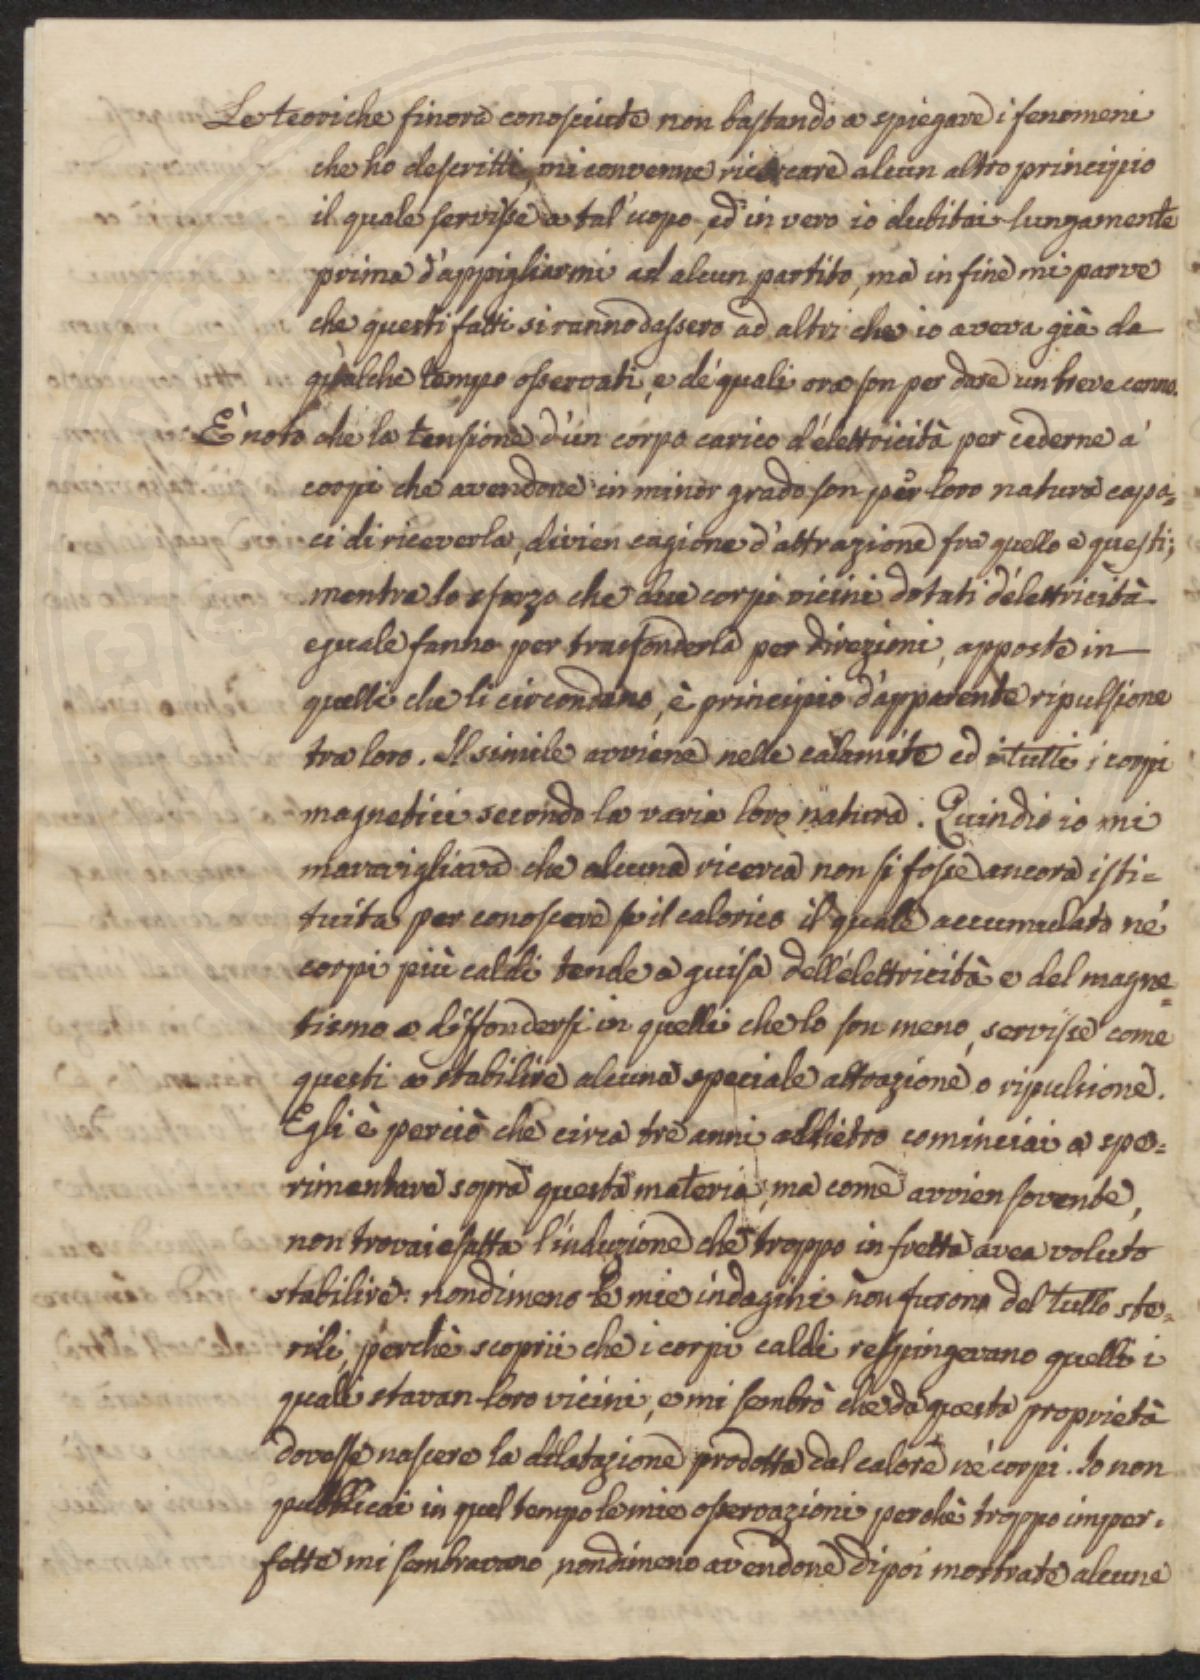 Le teoriche finora conosciute non bastando a spiegare i fenomeni
che ho descritti, mi convenne ricercare alcun altro principio
il quale servisse a tal' uopo, ed in vero io dubitai lungamente
prima d'appigliarmi ad alcun partito, ma in fine mi parve
che questi fatti si rannodassero ad altri che io aveva già da
qualche tempo osservati, e de' quali ora son per dare un breve cenno.
È noto che la tensione d'un corpo carico d'elettricità per cederne a'
corpi che avendone in minor grado son per loro natura capa=
ci di riceverla, divien cagione d'attrazione fra quello e questi;
mentre lo sforzo che due corpi vicini dotati d'elettricità
eguale fanno per trasfonderla per direzioni, opposte in
quelli che li circondano, è principio d'apparente ripulsione
tra loro. Il simile avviene nelle calamite ed in tutti i corpi
magnetici secondo la varia loro natura. Quindi io mi
maravigliava che alcuna ricerca non si fosse ancora isti=
tuita per conoscere se il calorico il quale accumulato ne'
corpi più caldi tende a guisa dell'elettricità e del magne=
tismo a diffondersi in quelli che lo son meno, servisse come
questi a stabilire alcuna speciale attrazione o ripulsione.
Egli è perciò che circa tre anni addietro cominciai a spe=
rimentare sopra questa materia, ma come avvien sovente,
non trovai esatta l'induzione che troppo in fretta avea voluto
stabilire: nondimeno le mie indagini non furono del tutto ste=
rili, perchè scoprii che i corpi caldi respingevano quelli i
quali stavan loro vicini, e mi sembrò che da questa proprietà
dovesse nascere la dilatazione prodotta dal calore ne' corpi. Io non
pubblicai in quel tempo le mie osservazioni perchè troppo imper=
fette mi sembravano, nondimeno avendone dipoi mostrate alcune